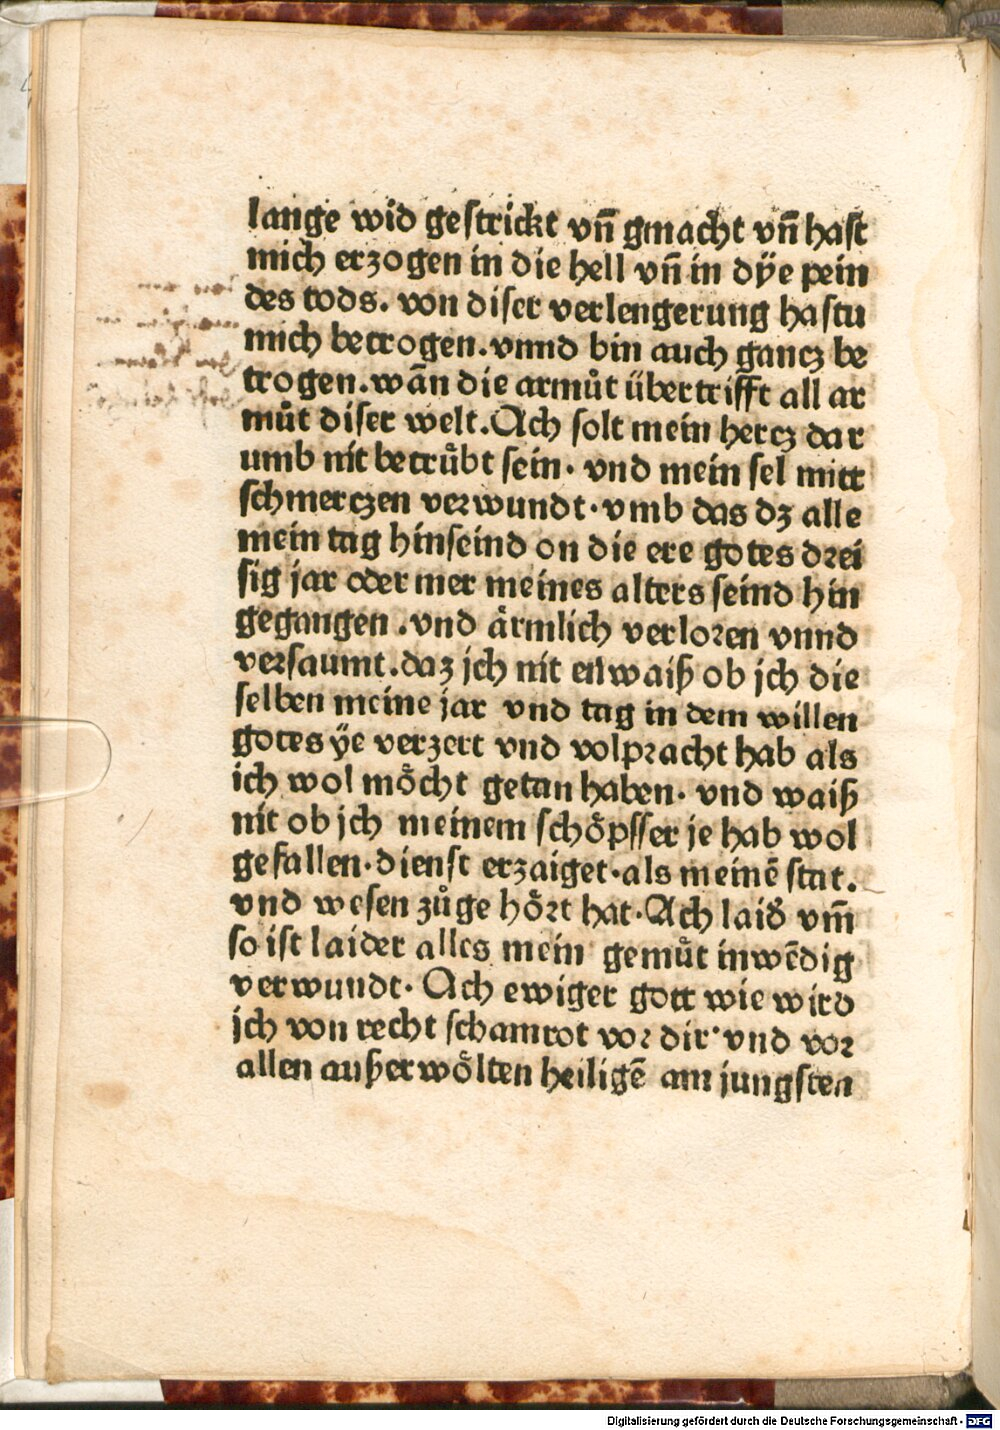 lange wid gestrickt vn̄ gmacht vn̄ hast
mich erzogen in die hell vn̄ in dÿe pein
des tods. von diser verlengerung hastu
mich betrogen. vnnd bin auch gancz be
trogen. wān die armůt übertrifft all ar
můt diser welt. Ach solt mein hercz dar
umb nit betrůbt sein. vnd mein sel mitt
schmerczen verwundt. vmb das dz alle
mein tag hinseind on die ere gotes drei
sig jar oder mer meines alters seind hin
gegangen. vnd aͤrmlich verloren vnnd
versaumt. daz jch nit enwaiß ob jch die
selben meine jar vnd tag in dem willen
gotes ÿe verzert vnd volpracht hab als
ich wol moͤcht getan haben. vnd waiß
nit ob jch meinem schoͤpffer je hab wol
gefallen. dienst erzaiget. als meinē stat.
vnd wesen zůge hoͤrt hat. Ach laid vm̄
so ist laider alles mein gemůt inwēdig
verwundt. Ach ewiger gott wie wird
jch von recht schamrot vor dir. vnd vor
allen außerwoͤlten heiligē am jungsten
Digitalisierung gefördert durch die Deutsche Forschungsgemeinschaft - DFG